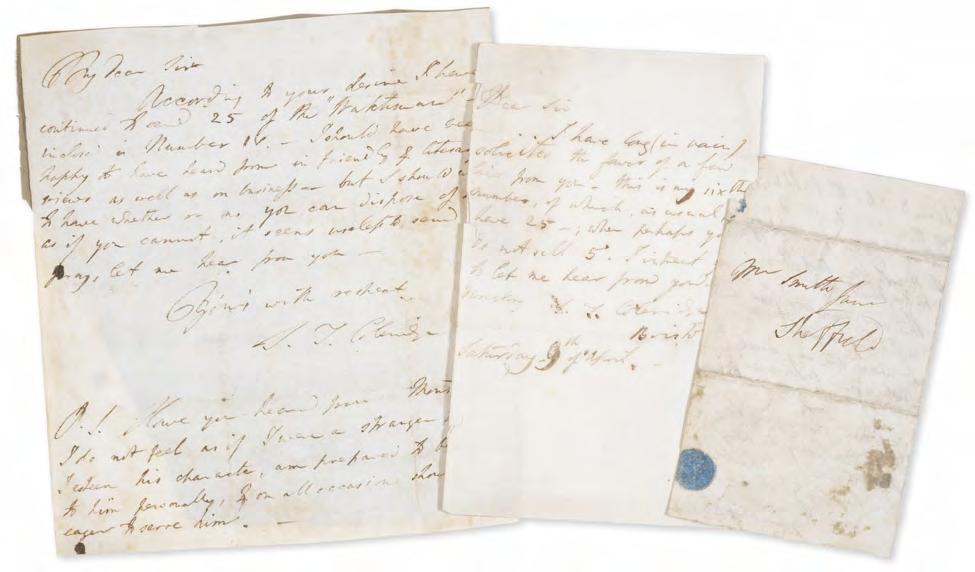 My dear Sir
According to your desire I have
continued to send 25 of the "Watchman" -
inclosed is Number IV. - I should have been
happy to have heard from in friendly & litera
views as well as on business - but I should
to know whether or no you can dispose of
as if you cannot, it seems useless to send
pray, let me hear from you -
Your's with respect
S. T. Coleridge
P. S. Have you heard from Mont
I do not feel as if I were a stranger
I esteem his character, am prepared to
to him personally, & on all occasions shou
eager to serve him. -
Dear Sir
. . I have long (in vain)
solicited the favor of a few
lines from you - this is my sixth
number, of which, as usual
have 25 -, when perhaps yo
do not sell 5. I intreat
to let me hear from you.
S. T. Coleridge
Bristol
Saturday 9th of April. -
Mr Smith
Sheffield